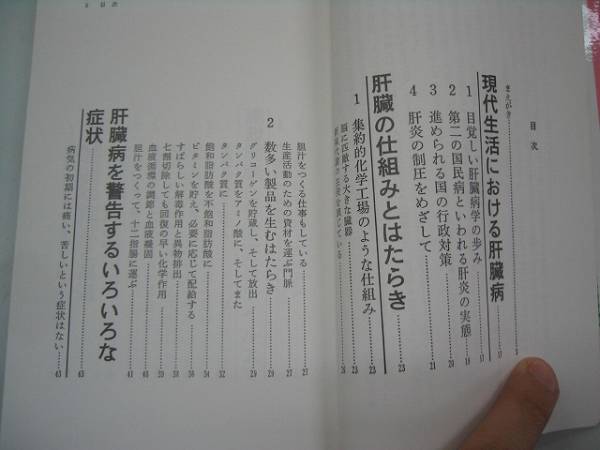 目次
まえがき
現代生活における肝臓病
1 目覚しい肝臓病学の歩み
2 第二の国民病といわれる肝炎の実態
3 進められる国の行政対策
4 肝炎の制圧をめざして
肝臓の仕組みとはたらき……23
1 集約的化学工場のような仕組み……23
脳に匹敵する大きな臓器……23
胆汁をつくる仕事もしている……27
生産活動のための資材を運ぶ門脈……27
2 数多い製品を生むはたらき……29
グリコーゲンを貯蔵し、そして放出……29
タンパク質をアミノ酸に、そしてまた
タンパク質に……32
飽和脂肪酸を不飽和脂肪酸に……34
ビタミンを貯え、必要に応じて配給する……36
すばらしい解毒作用と異物排出……38
七割切除しても回復の早い化学作用……39
血液循環の調節と血液凝固……40
胆汁をつくって、十二指腸に運ぶ……41
肝臓病を警告するいろいろな
症状……43
病気の初期には痛い、苦しいという症状はない……43
目次